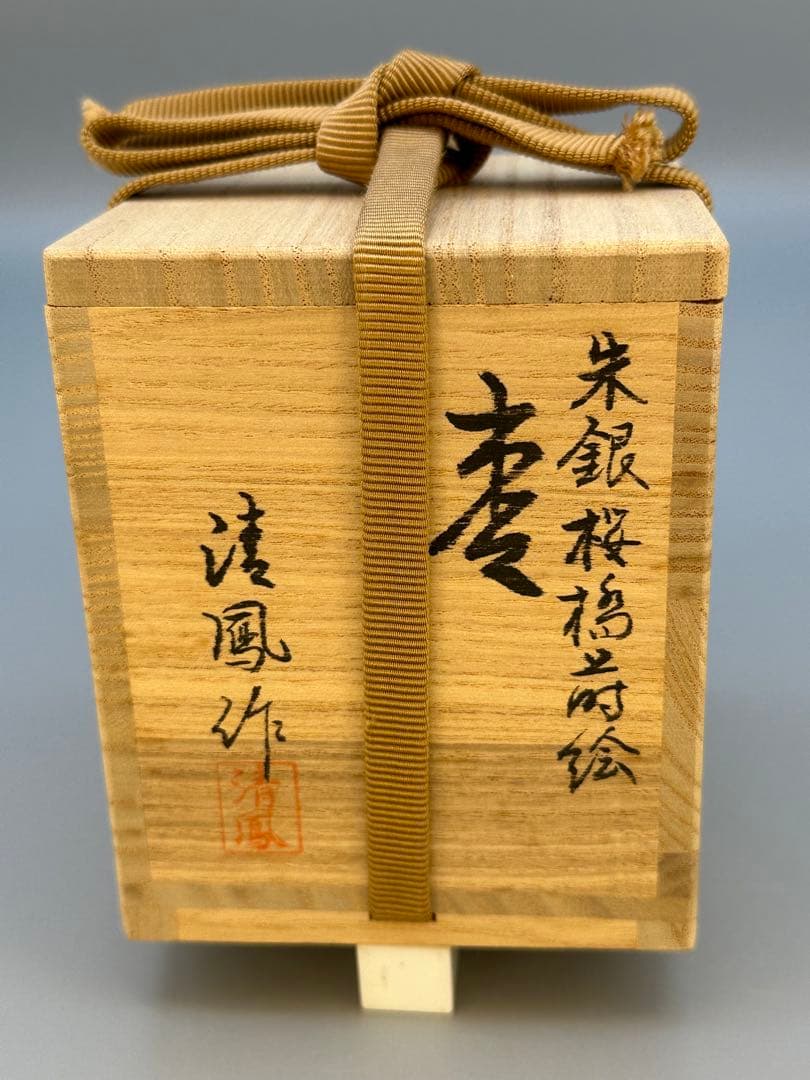 朱銀桜橋蒔絵
棗
清鳳作
清鳳